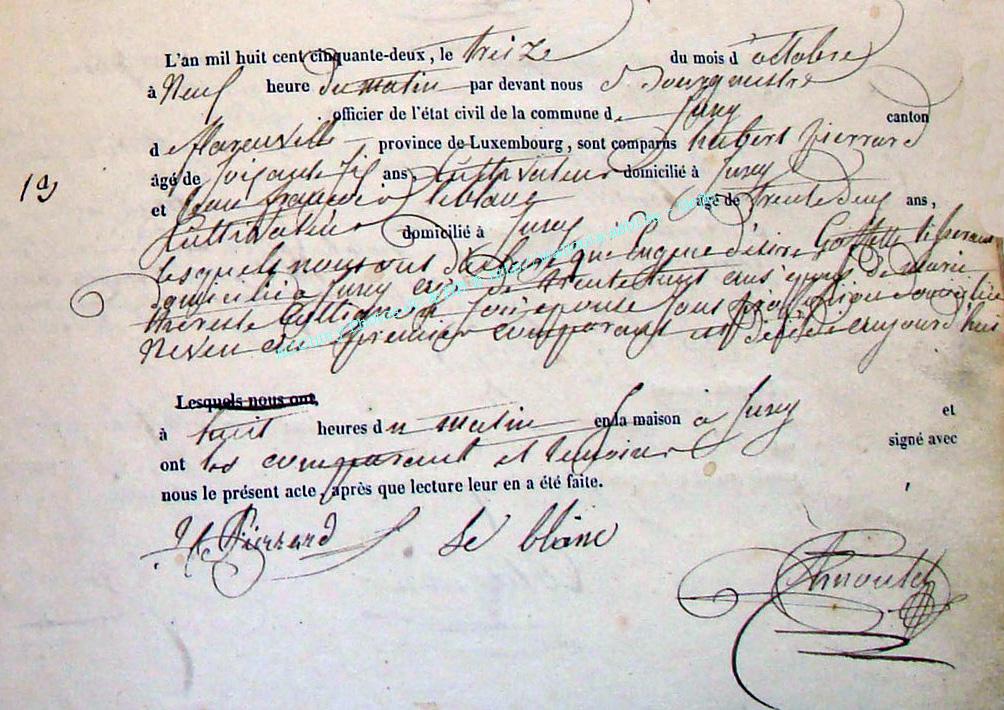 L'an mil huit cent cinquante-deux, le treize du mois d'octobre
à Neuf heure du matin par devant nous Bourgmestre
officier de l'état civil de la commune d Jusy canton
d province de Luxembourg, sont comparus hubert pierrard
19 âgé de ans, Cultivateur domicilié à Jusy
et Jean françois leblanc âgé de trente deux ans,
Cultivateur domicilié à Jusy
lesquels nous ont déclaré que Eugene désiré
domicilié à Jusy de trente huit ans époux de marie
thereste son épouse sous profession
Neveu du premier comparant est décédé aujourd'hui
Lesquels nous ont,
à huit heures du matin en la maison à Jusy et
ont les comparant et temoins signé avec
nous le présent acte, après que lecture leur en a été faite.
H Pierrard le blanc